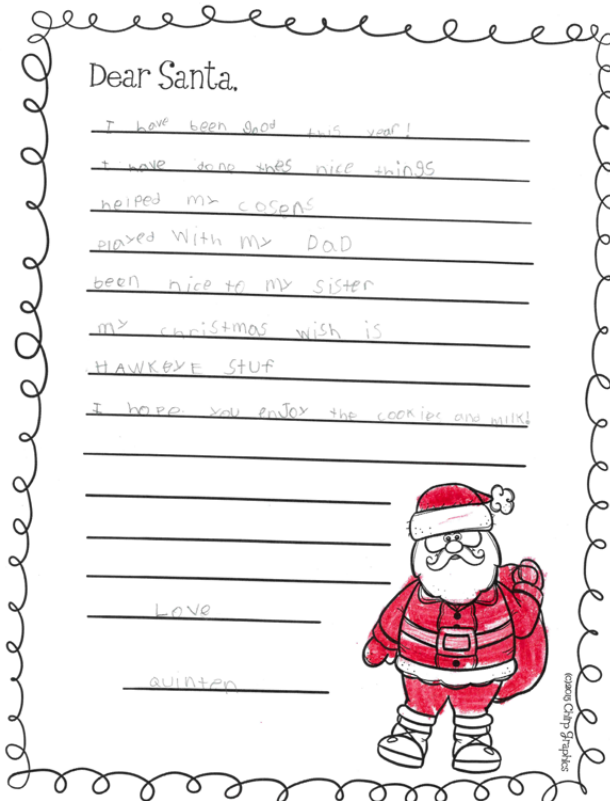 Dear Santa,
I have been good this year!
I have done thes nice things
helped my cosens
Played With my DaD
been nice to my sister
my christmas wish is
HAWKeYE stuf
I hope you enjoy the cookies and milk!
Love
Quinten
©2015 Chirp Graphics